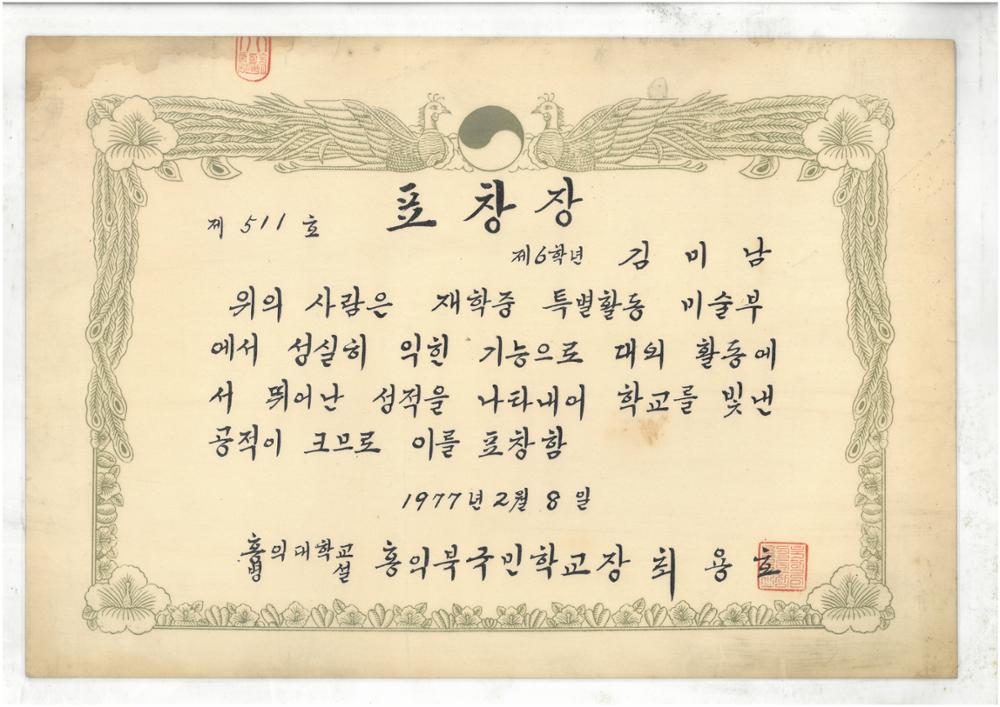 표창장
제 511 호
제6학년 김미남
위의 사람은 재학중 특별활동 미술부
에서 성실히 익힌 기능으로 대외 활동에
서 뛰어난 성적을 나타내어 학교를 빛낸
공적이 크므로 이를 표창함
1977년 2월 8일
홍익대학교
병 설
홍익북국민학교장 최용호